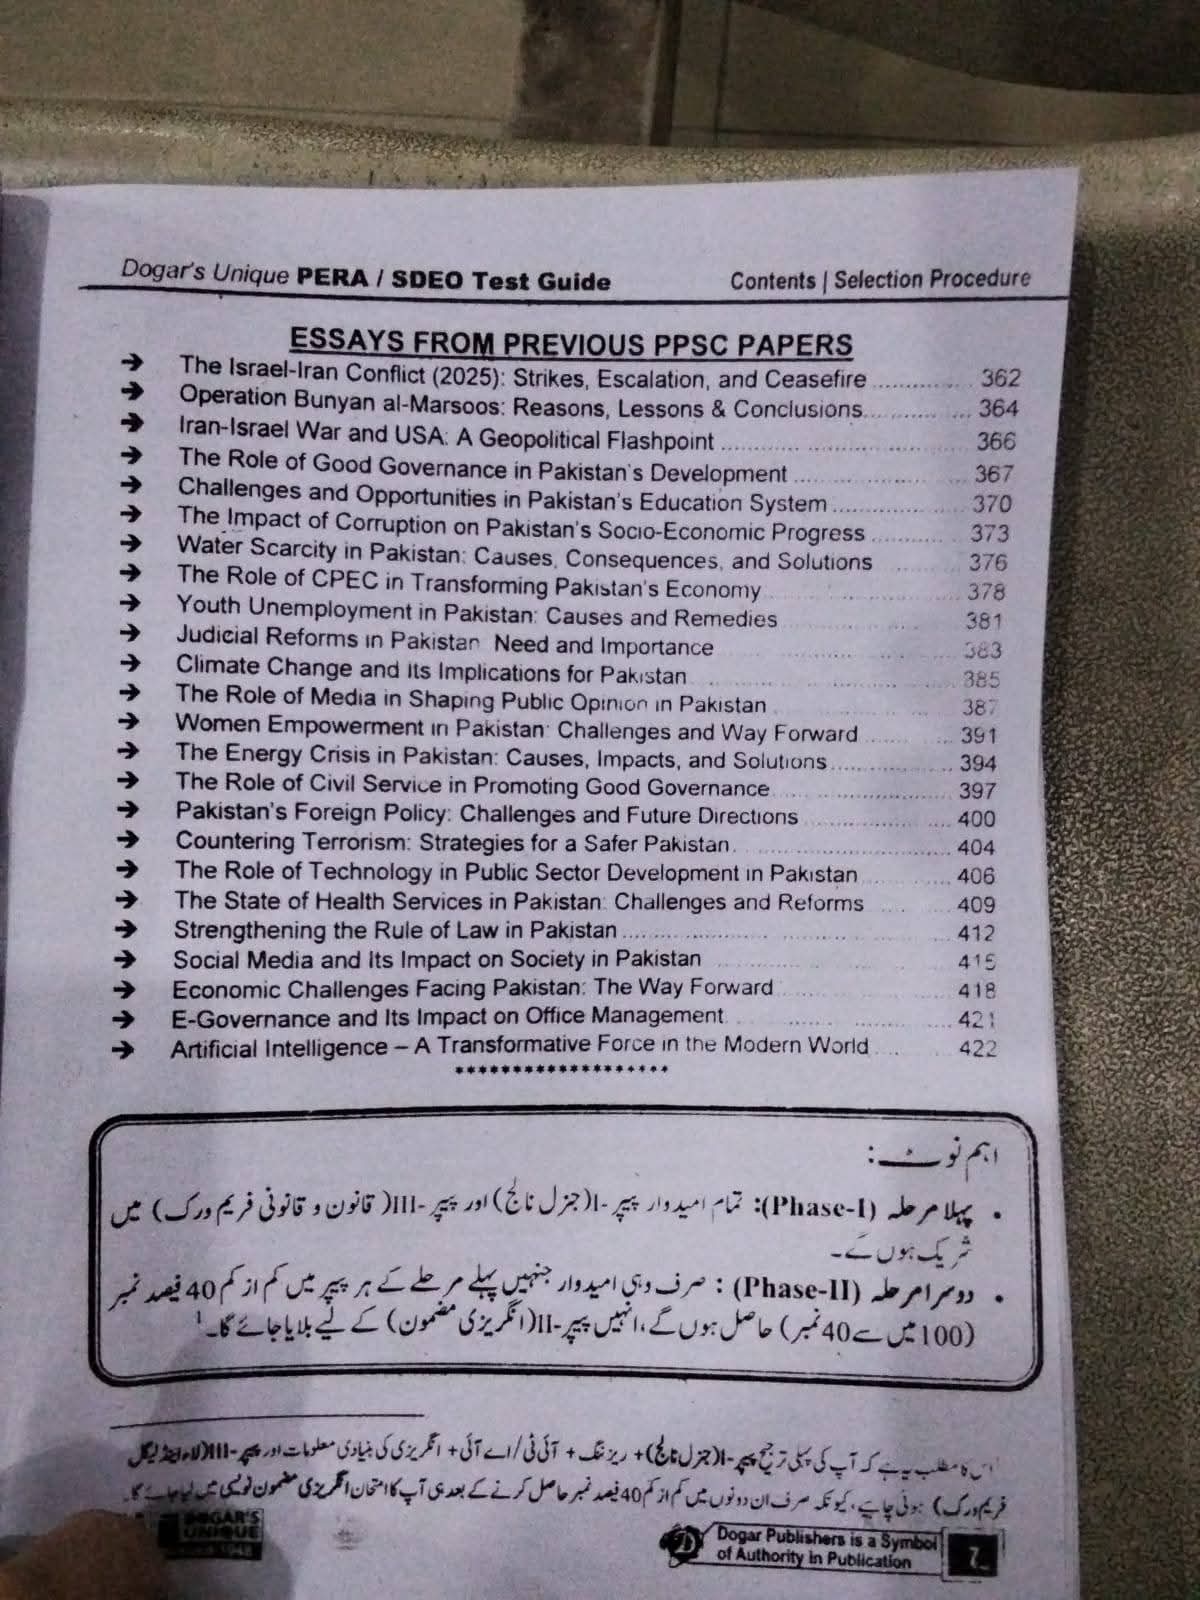 Dogar's Unique PERA / SDEO Test Guide Contents | Selection Procedure
ESSAYS FROM PREVIOUS PPSC PAPERS
➔ The Israel-Iran Conflict (2025): Strikes, Escalation, and Ceasefire 362
➔ Operation Bunyan al-Marsoos: Reasons, Lessons & Conclusions 364
➔ Iran-Israel War and USA: A Geopolitical Flashpoint 366
➔ The Role of Good Governance in Pakistan's Development 367
➔ Challenges and Opportunities in Pakistan's Education System 370
➔ The Impact of Corruption on Pakistan's Socio-Economic Progress 373
➔ Water Scarcity in Pakistan: Causes, Consequences, and Solutions 376
➔ The Role of CPEC in Transforming Pakistan's Economy 378
➔ Youth Unemployment in Pakistan: Causes and Remedies 381
➔ Judicial Reforms in Pakistan Need and Importance 383
➔ Climate Change and Its Implications for Pakistan 385
➔ The Role of Media in Shaping Public Opinion in Pakistan 387
➔ Women Empowerment in Pakistan: Challenges and Way Forward 391
➔ The Energy Crisis in Pakistan: Causes, Impacts, and Solutions 394
➔ The Role of Civil Service in Promoting Good Governance 397
➔ Pakistan's Foreign Policy: Challenges and Future Directions 400
➔ Countering Terrorism: Strategies for a Safer Pakistan 404
➔ The Role of Technology in Public Sector Development in Pakistan 406
➔ The State of Health Services in Pakistan: Challenges and Reforms 409
➔ Strengthening the Rule of Law in Pakistan 412
➔ Social Media and Its Impact on Society in Pakistan 415
➔ Economic Challenges Facing Pakistan: The Way Forward 418
➔ E-Governance and Its Impact on Office Management 421
➔ Artificial Intelligence – A Transformative Force in the Modern World 422
*******************
اہم نوٹ:
• پہلا مرحلہ (Phase-I): تمام امیدوار پیپر-I(جنرل نالج) اور پیپر-III( قانون و قانونی فریم ورک) میں
شریک ہوں گے۔
• دوسرا مرحلہ (Phase-II) : صرف وہی امیدوار جنہیں پہلے مرحلے کے ہر پیپر میں کم از کم 40 فیصد نمبر
(100 میں سے 40 نمبر) حاصل ہوں گے، انہیں پیپر-II(انگریزی مضمون) کے لیے بلایا جائے گا۔1
اس کا مطلب یہ ہے کہ آپ کی پہلی ترجیح پیپر-I(جنرل نالج)+ ریزننگ + آئی ٹی/اے آئی+ انگریزی کی بنیادی معلومات اور پیپر-III(لاء اینڈ لیگل
فریم ورک) ہونی چاہیے، کیونکہ صرف ان دونوں میں کم از کم 40 فیصد نمبر حاصل کرنے کے بعد ہی آپ کا امتحان انگریزی مضمون نویسی میں لیا جائے گا۔
DOGAR'S
UNIQUE
1948
Dogar Publishers is a Symbol
of Authority in Publication
7